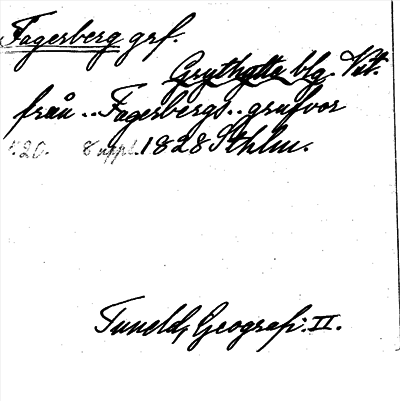 Fagerberg grf.
Grythytte blg. Vstm.
från "Fagerbergs" grufvor
s. 20. 8 uppl. 1828 Sthlm.
Tuneld, Geografi. II.